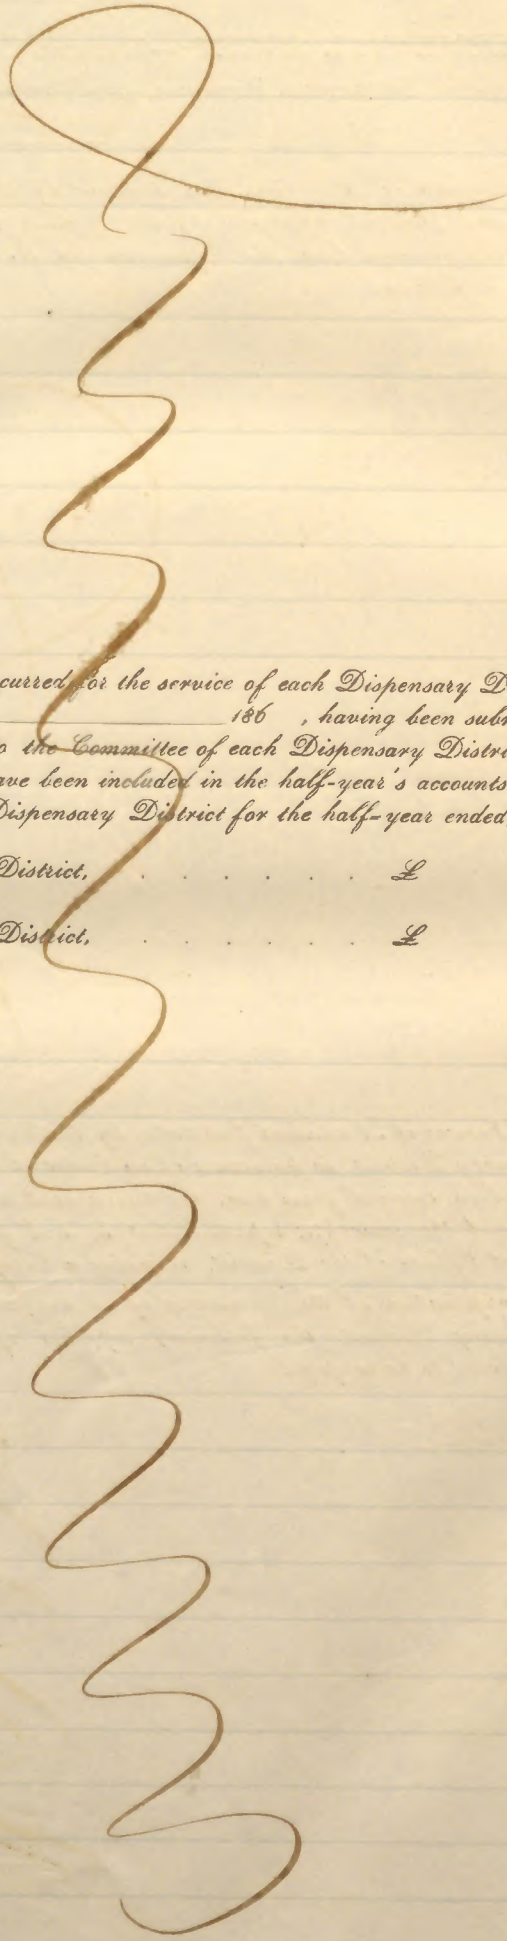 curred for the service of each Dispensary D
186 , having been subm
o the Committee of each Dispensary Distri
ave been included in the half-year's accounts
Dispensary District for the half-year ended
District, . . . . . . £
District, . . . . . . £